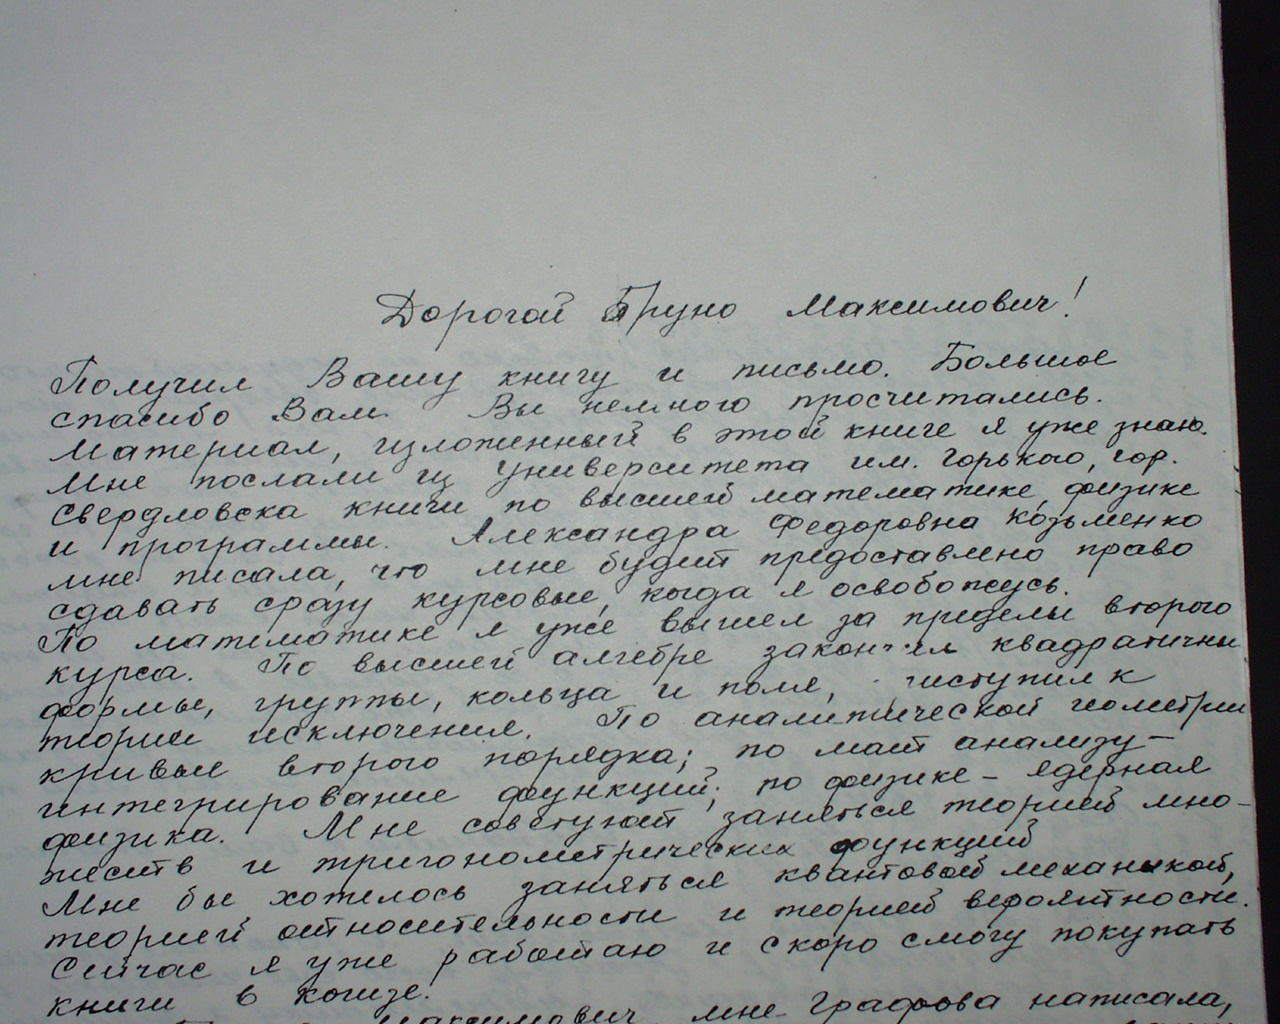 Дорогой Бруно Максимович!
Получил Вашу книгу и письмо. Большое
спасибо Вам. Вы немного просчитались.
Материал, изложенный в этой книге я уже знаю.
Мне послали из Университета им. Горького, гор.
Свердловска книги по высшей математике, физике
и программы. Александра Федоровна Козьменко
мне писала, что мне будет предоставлено право
сдавать сразу курсовые, когда я освобожусь.
По математике я уже вышел за пределы второго
курса. По высшей алгебре закончил квадратичны
формы, группы, кольца и поля, приступил к
теории исключения. По аналитической геометрии
кривые второго порядка; по мат анализу –
интегрирование функций; по физике – ядерная
физика. Мне советуют заняться теорией мно-
жеств и тригонометрических функций
Мне бы хотелось заняться квантовой механикой,
теорией относительности и теорией вероятности.
Сейчас я уже работаю и скоро смогу покупать
книги в когизе.
Максимович мне Графова написала,